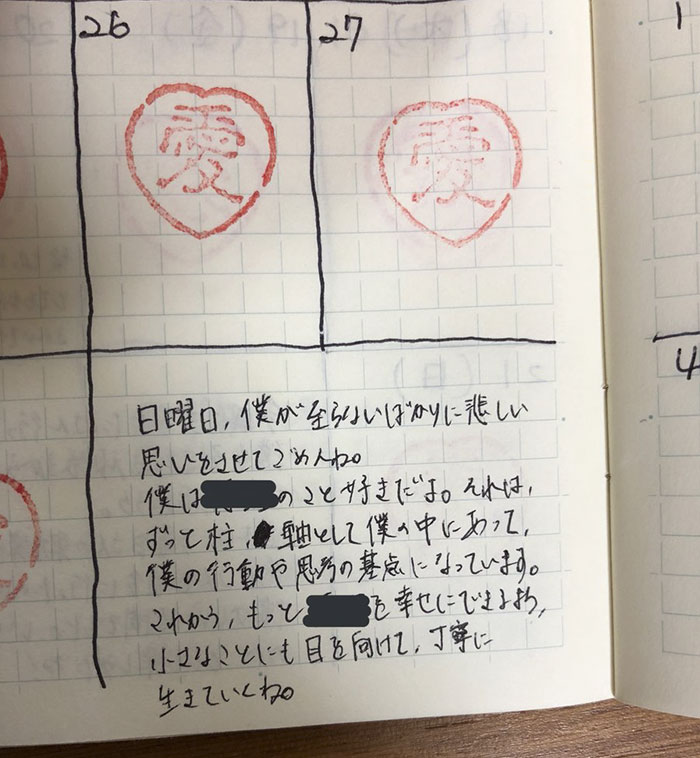 26
27
愛
愛
1
4
日曜日、僕が至らないばかりに悲しい
思いをさせてごめんね。
僕は のこと好きだよ。それは、
ずっと柱、軸として僕の中にあって、
僕の行動や思考の基点になっています。
これから、もっと を幸せにできるよう、
小さなことにも目を向けて、丁寧に
生きていくね。